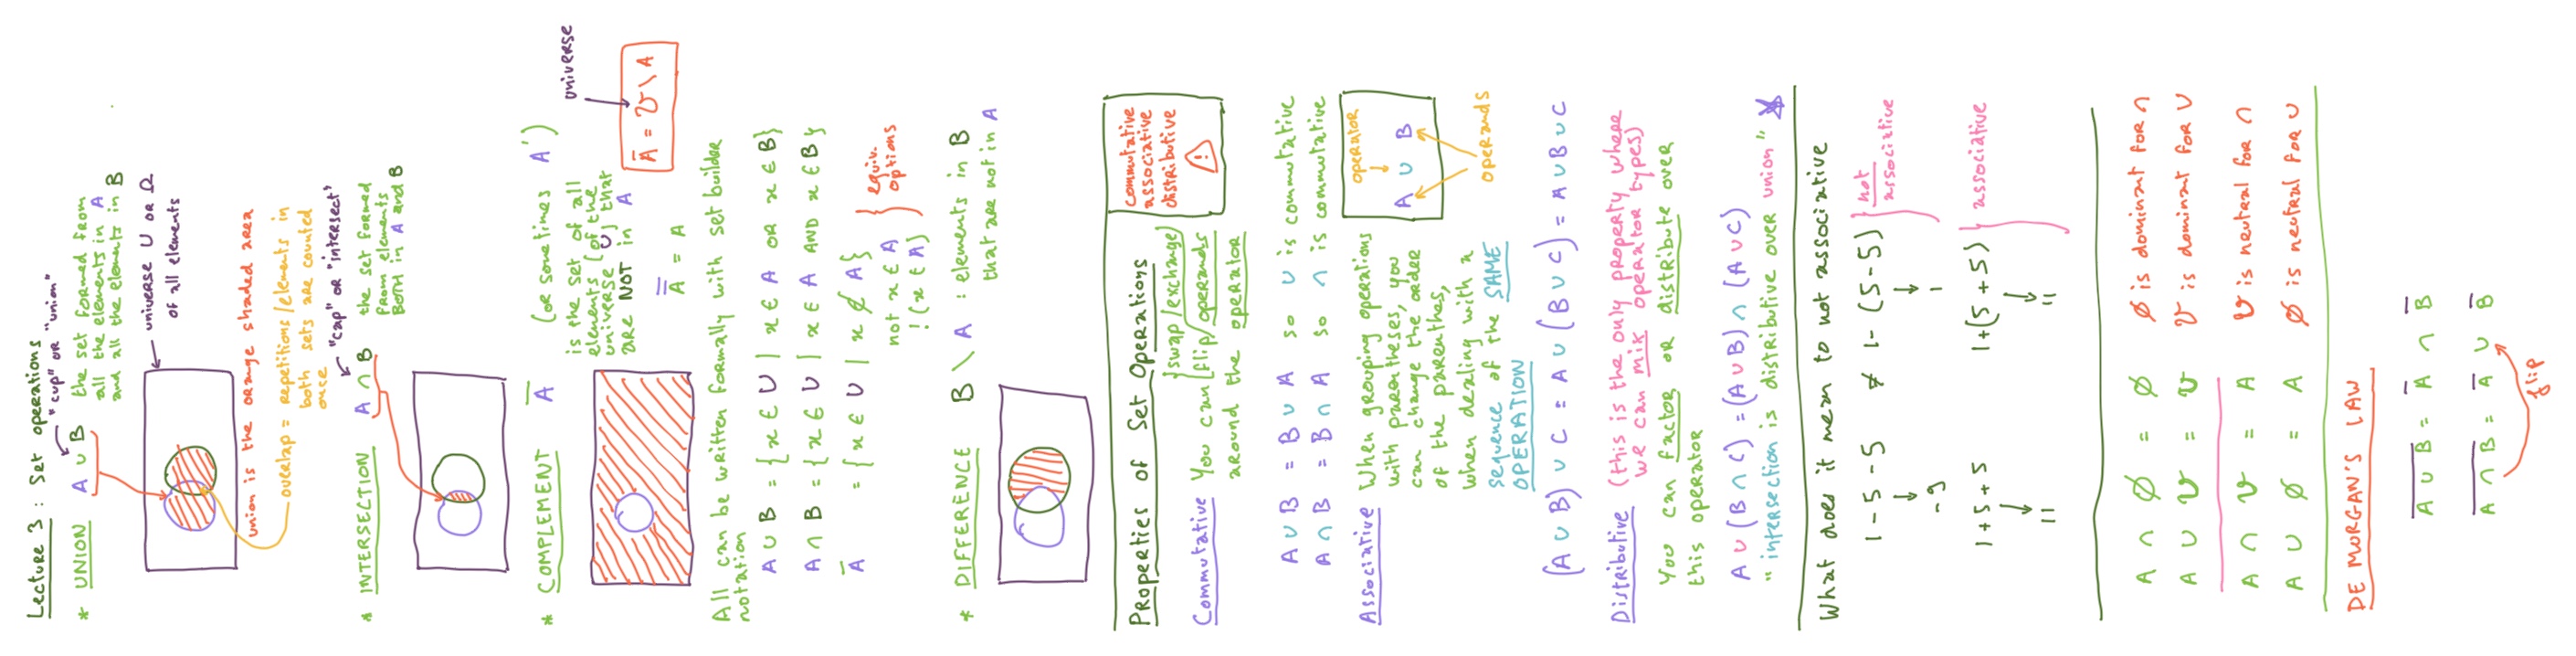 Lecture 3 : Set operations
* UNION A ∪ B
"cup" or "union"
the set formed from
all the elements in A
and all the elements in B
universe U or Ω
of all elements
union is the orange shaded area
overlap = repetitions/elements in
both sets are counted
once
* INTERSECTION A ∩ B
"cap" or "intersect"
the set formed
from elements
BOTH in A and B
* COMPLEMENT Ā (or sometimes A')
is the set of all
elements (of the
universe U) that
are NOT in A
A̿ = A
universe
Ā = U \ A
All can be written formally with set builder
notation
A ∪ B = {x ∈ U | x ∈ A OR x ∈ B}
A ∩ B = {x ∈ U | x ∈ A AND x ∈ B}
Ā = {x ∈ U | x ∉ A}
not x ∈ A
!(x ∈ A)
equiv.
options
* DIFFERENCE B \ A : elements in B
that are not in A
Properties of Set Operations
commutative
associative
distributive
!
Commutative You can {swap/exchange/
flip/operands
around the operator
A ∪ B = B ∪ A so ∪ is commutative
A ∩ B = B ∩ A so ∩ is commutative
Associative When grouping operations
with parentheses, you
can change the order
of the parentheses,
when dealing with a
sequence of the SAME
OPERATION
operator
A ∪ B
operands
(A ∪ B) ∪ C = A ∪ (B ∪ C) = A ∪ B ∪ C
Distributive (this is the only property where
we can mix operator types)
You can factor or distribute over
this operator
A ∪ (B ∩ C) = (A ∪ B) ∩ (A ∪ C)
"intersection is distributive over union"
What does it mean to not associative
1 - 5 - 5 ≠ 1 - (5 - 5) } not
associative
-9 1
1 + 5 + 5 1 + (5 + 5) } associative
11 11
A ∩ ∅ = ∅ ∅ is dominant for ∩
A ∪ U = U U is dominant for ∪
A ∩ U = A U is neutral for ∩
A ∪ ∅ = A ∅ is neutral for ∪
DE MORGAN'S LAW
A̅ ∪̅ B̅ = A̅ ∩ B̅
A̅ ∩̅ B̅ = A̅ ∪ B̅
flip